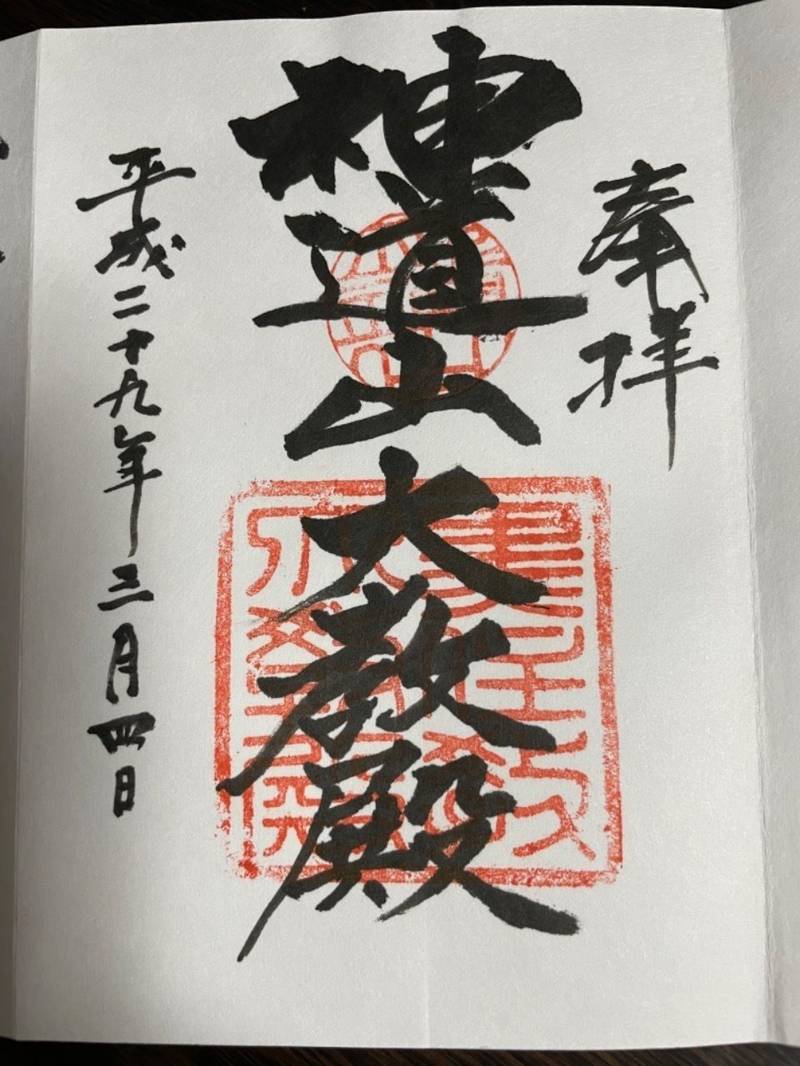 奉拝
神道山大教殿
平成二十九年三月四日